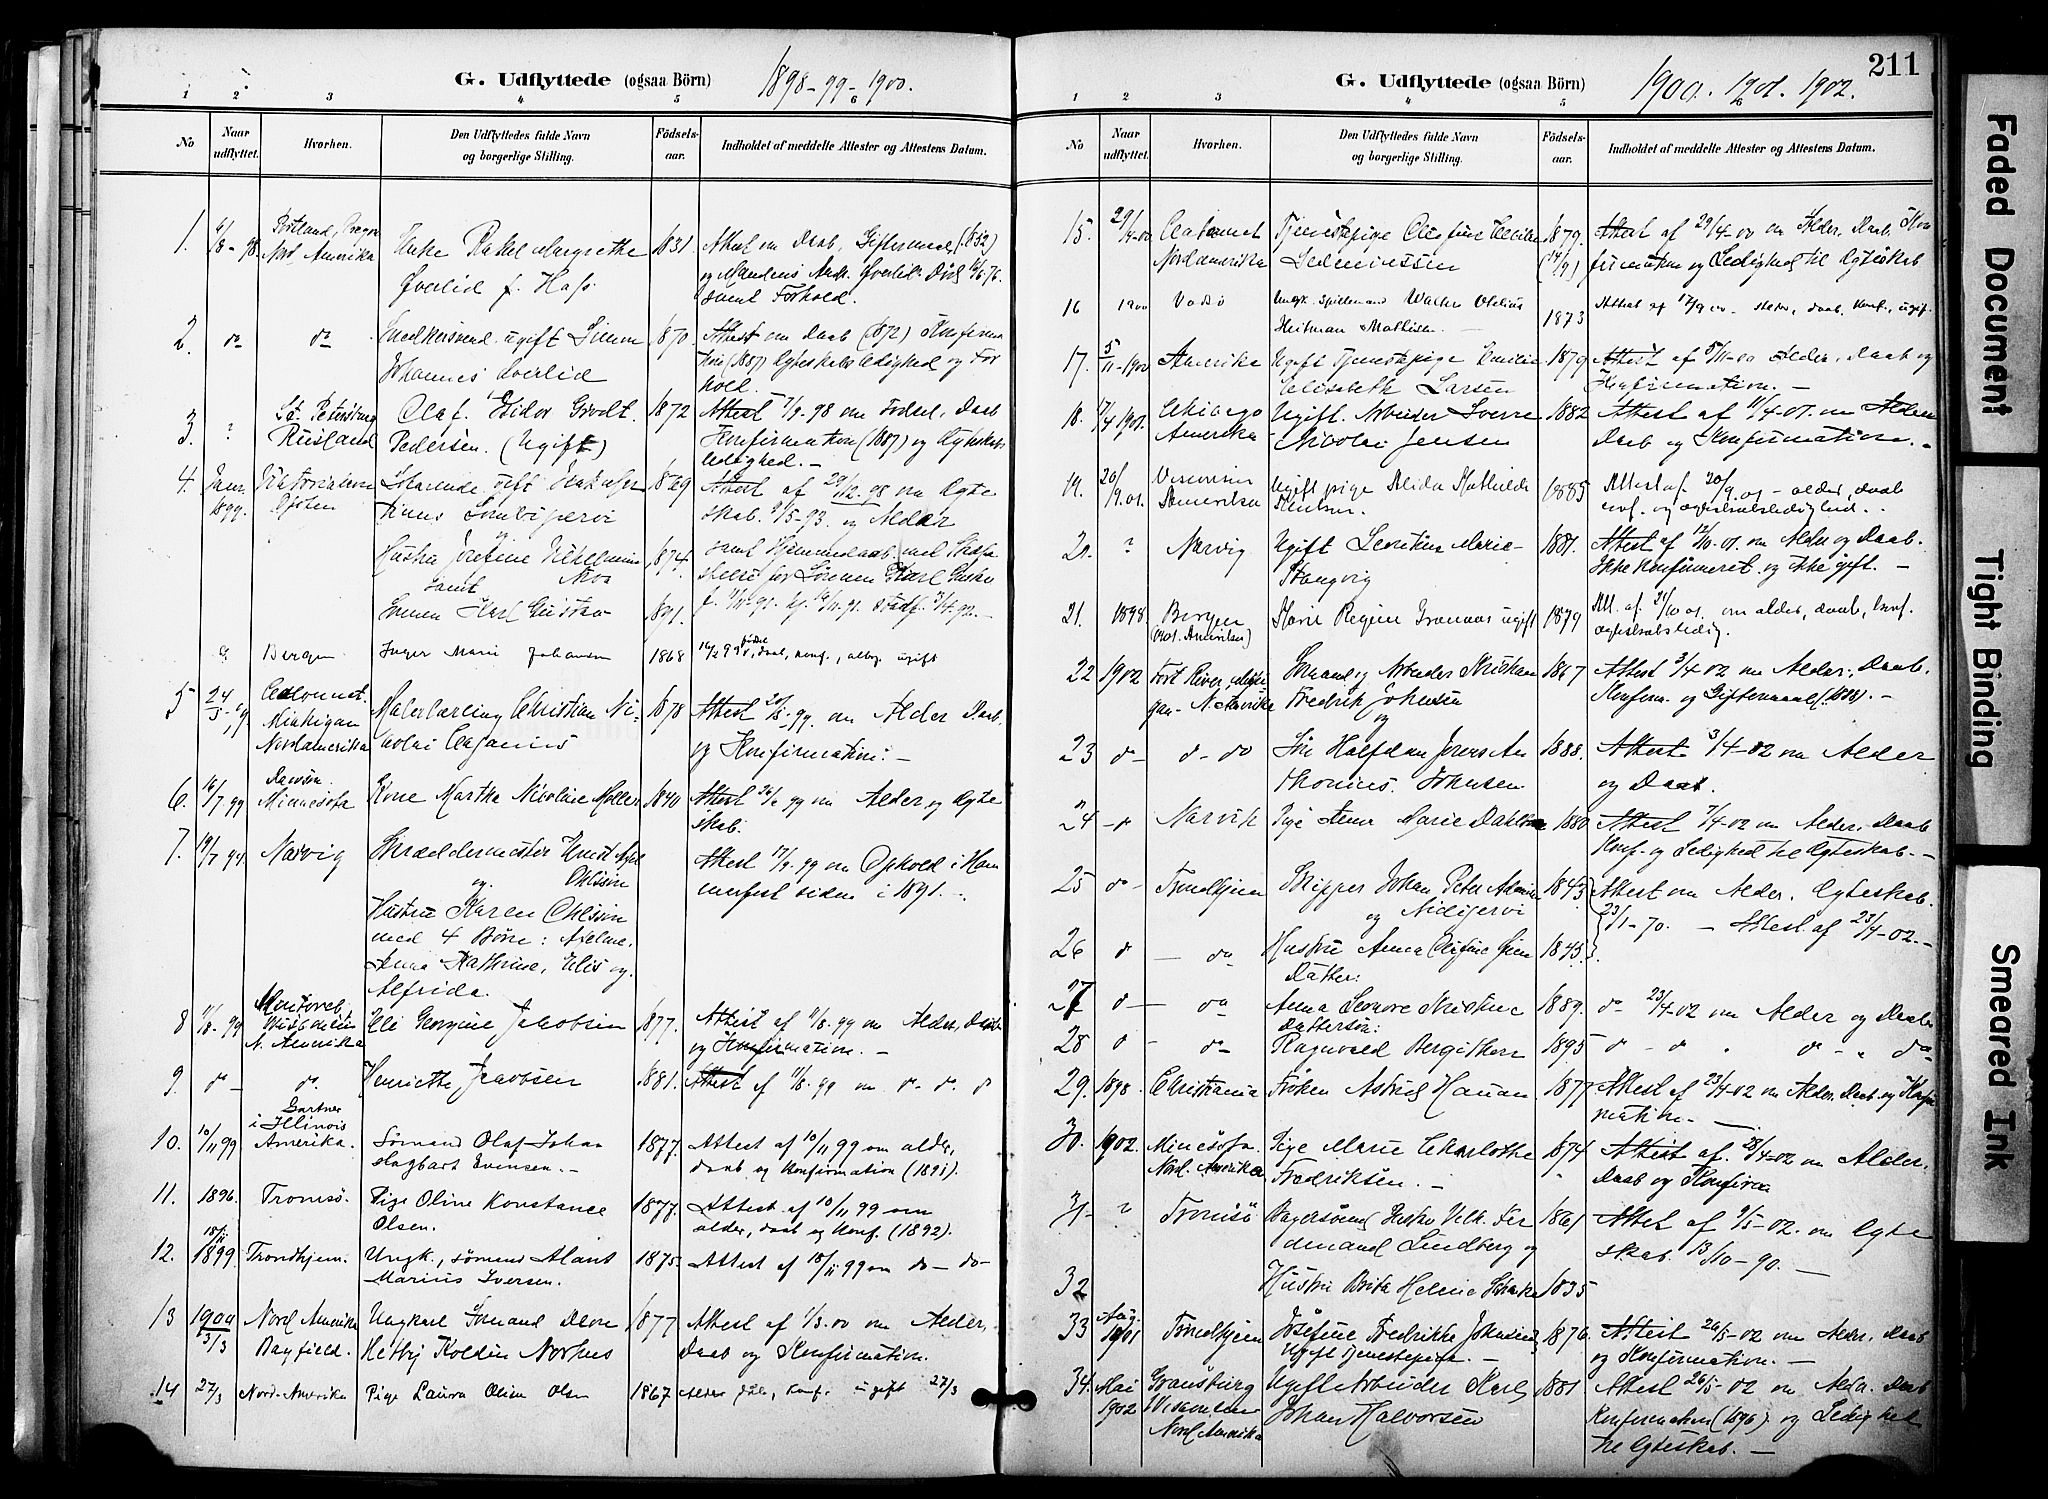 G. Udflyttede (ogsaa Börn) 1898-99-1900.
1 2 3 4 5 6
No
Naar udflyttet.
Hvorhen.
Den Udflyttedes fulde Navn og borgerlige Stilling.
Födsels-aar.
Indholdet af meddelte Attester og Attestens Datum.
1. 6/8-98. Portland, Oregon Nord Amerika
Enke Rakel Margrethe
Øverlid f.
1831.
Attest om Daab, Giftermaal
samt Forhold.
2. do do
Snedkersvend ugift Simon
Johannes Øverlid
1870.
Attest om Daab (1872) Konfirma
tion (1887) Egteskabsledighed og For
hold.
3. ? St. Petersburg Rusland
Olaf Hidor Grodt
Pedersen. (Ugift)
1872
Attest 7/9-98 om Fødsel, Daab
Konfirmation (1887) og Egteskabs
ledighed. -
4. Janr. 1899.
1869
Attest af 29/12-98 om Egte
skab. 9/5-93. og Alder
Hustru Josefine Vilhelmine
1874.
samt
Sønnen Karl Gustav
1891.
Bergen
Inger Marie Johansen
1868
5 24/5-99 Calumet. Michigan Nordamerika
Malerlærling Christian Ni-
kolai
1878
Attest 20/5-99. om Alder Daab.
og Konfirmation. -
6. 16/7 99 Dawson Minnesota
Kone Martha Nikoline Møller
1840
Attest 26/6 99 om Alder og Egte
skab.
7. 19/7 99 Narvig
Skræddermester Ernst Axel
og Ohlsson
Hustru Karen Ohlsson
med 4 Børn: Axeline,
Anna Kathrine, Elis og
Alfrida.
Attest 17/7-99 om Ophold i Ham
merfest siden i 1891. -
8 11/8-99 N. Amerika
Eli Georgine Jakobsen
1877.
Attest af 11/8-99 om Alder, Daab
og Konfirmation. -
9. do - do.
Henriette Jacobsen
1881.
Attest af 11/8-99 om do do do
10. 10/11 99 Gartner i Illinois Amerika.
Sømand Olaf Johan
Hagbart Evensen. -
1877.
Attest af 10/11 99 om alder,
daab og Konfirmation (1891).
11. 1896. Tromsø.
Pige Oline Konstance
Olsen.
1877.
Attest af 10/11 99 om
alder, daab og Konf. (1892).
12. 18/11 1899. Trondhjem.
Ungk., sømand Alant
Marius Iversen.
1875.
Attest af 18/11 99 om do- do-
13 1900 13/3 Nord Amerika Bayfield.
Ungkarl Sømand
Norhus
1877
Attest af 1/3.00 om Alder,
Daab og Konfirmation.
14 27/3 Nord-Amerika
Pige Laura Oline Olsen
1867
Alder, daab, Konf. ugift 27/3
G. Udflyttede (ogsaa Börn) 1900. 1901. 1902.
211
1 2 3 4 5 6
No
Naar udflyttet.
Hvorhen.
Den Udflyttedes fulde Navn og borgerlige Stilling.
Födsels-aar.
Indholdet af meddelte Attester og Attestens Datum.
15. 29/4-00 Calumet Nordamerika
Tjenestepige Olufine Cecilie
1879. (14/9)
Attest af 29/4-00 om Alder, Daab, Kon
firmation og Ledighed til Egteskab
16 1900 Vadsø
Heitman Mathisen.
1873
Attest af 17/9 00 Alder, daab, Konf. ugift.
17. 5/11-1900 Amerika
Ugift Tjenestepige Emilie
Elisabeth Larsen
1879
Attest af 5/11-00 Alder, Daab og
Konfirmation. -
18. 17/4 1901. Chicago Amerika
Ugift. Arbeider Sverre
Nikolai Jensen
1882
Attest af 11/4-01. om Alder
Daab og Konfirmation. -
19. 20/9.01. Visconsin Amerika
Ugift pige Alida Mathilde
Knutsen.
1885
Attest af 20/9.01 - alder, daab
konf. og egteskabsledighed.
20. ? Narvig
Ugift Marie
Stangvig
1881.
Attest af 12/10-01. om Alder og Daab.
Ikke Konfirmeret og ikke gift. -
21. 1898. Bergen (Nord. Amerika)
Marie Regine ugift
1879
Att. af 21/10 01. om alder, daab, konf.
egteskabsledig.
22 1902 N. Amerika
Sømand og Arbeider Kristian
Fredrik Johnsen
og
1867
Attest 3/4-02 om Alder. Daab.
Konfirm. og Giftermaal (1888). -
23 do- do- do
Søn Halfdan Jonas An
thonius. Johnsen
1888.
Attest 3/4-02 om Alder
og Daab.
24 -do Narvik
Pige Anna Marie
1880
Attest 7/4-02 om Alder. Daab
Konf. og Ledighed til Egteskab. -
25 do- Trondhjem
Skipper Johan Peter
og Nidijervi
1843
Attest om Alder. Egteskab.
23/1-70. - Attest af 23/4-02. -
26 do - do
Hustru Anna Olufine
Datter:
1845
27 do - do
Anna Leonore Kristine
Dattersøn:
1889.
do 23/4-02 om Alder og Daab
28 do - do
Ragnvald
1895
do - do " do - " do
29. 1898. Christiania
Frøken Astrid Hauan
1877.
Attest af 23/4-02 om Alder. Daab og Konfir
mation. -
30. 1902. Minesota. Nord. Amerika
Pige Marie Charlotte
Fredriksen. -
1874
Attest af. 28/4-02 om Alder.
Daab og Konfirm
31- ? Tromsø
Bagersvend Vilh. Fer
dinand Lindberg og
1861
Attest af 9/5-02. om Egte
skab. 13/10-90. -
32
Hustru Brita Helene
1835
33 Aug. 1901 Trondhjem
Josefine Fredrikke Johnsen
Ugift Tjenestepige. -
1876.
Attest 26/5-02 om Alder. Daab
og Konfirmation. -
34. Mai 1902 Nord Amerika
Ugift Arbeider Karl
Johan Halvorsen
1881
Attest 26/5-02 om Alder. Daab
Konfirmation (1896) og Ledighet
til Egteskab. -
Faded Document
Tight Binding
Smeared Ink